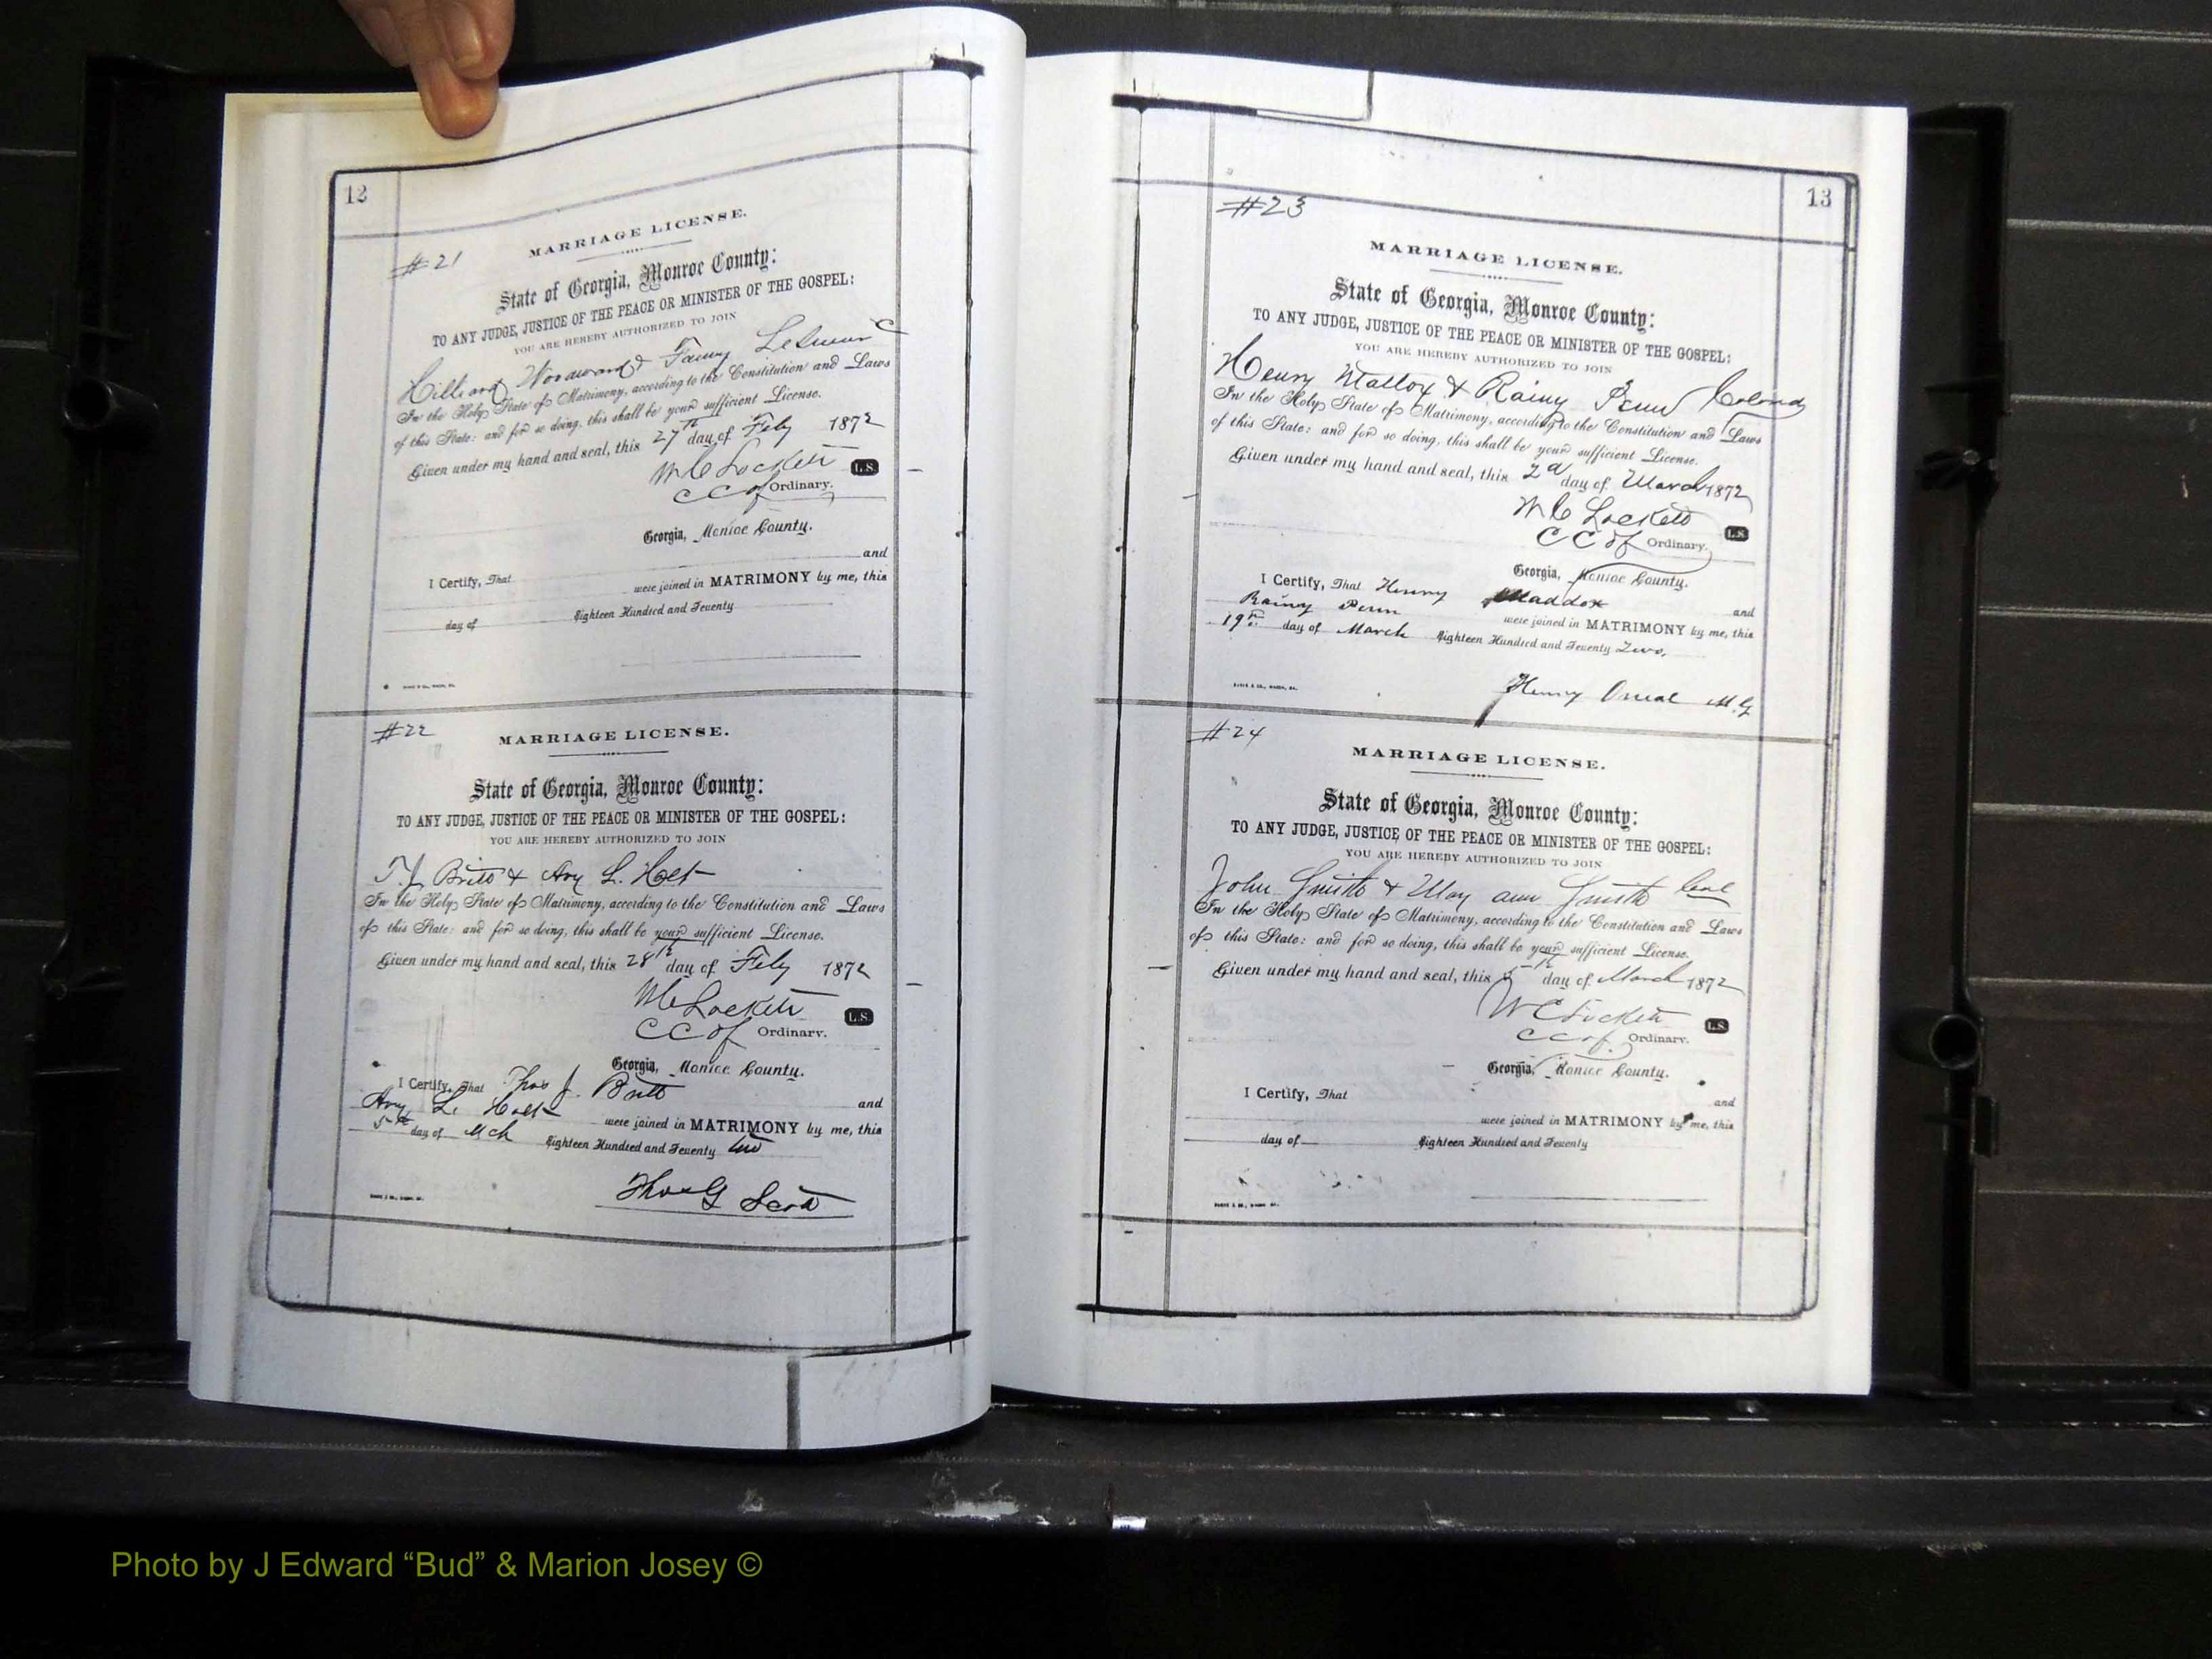 12
#21
MARRIAGE LICENSE.
State of Georgia, Monroe County:
TO ANY JUDGE, JUSTICE OF THE PEACE OR MINISTER OF THE GOSPEL:
YOU ARE HEREBY AUTHORIZED TO JOIN
Hilliard Woodward & Fanny C
In the Holy State of Matrimony, according to the Constitution and Laws
of this State: and for so doing, this shall be your sufficient License.
Given under my hand and seal, this 27th day of Feby 1872
W C Lockett L.S.
Ordinary.
Georgia, Monroe County.
I Certify, That and
were joined in MATRIMONY by me, this
day of Eighteen Hundred and Seventy
#22
MARRIAGE LICENSE.
State of Georgia, Monroe County:
TO ANY JUDGE, JUSTICE OF THE PEACE OR MINISTER OF THE GOSPEL:
YOU ARE HEREBY AUTHORIZED TO JOIN
T. J. Britt & L. Holt
In the Holy State of Matrimony, according to the Constitution and Laws
of this State: and for so doing, this shall be your sufficient License.
Given under my hand and seal, this 28th day of Feby 1872
W C Lockett L.S.
Ordinary.
Georgia, Monroe County.
I Certify, That Thos J. Britt and
L. Holt were joined in MATRIMONY by me, this
5th day of Mch Eighteen Hundred and Seventy two
Thos G Scott
13
#23
MARRIAGE LICENSE.
State of Georgia, Monroe County:
TO ANY JUDGE, JUSTICE OF THE PEACE OR MINISTER OF THE GOSPEL:
YOU ARE HEREBY AUTHORIZED TO JOIN
Henry Mattox & Rainy Penn Colored
In the Holy State of Matrimony, according to the Constitution and Laws
of this State: and for so doing, this shall be your sufficient License.
Given under my hand and seal, this 2d day of March 1872
W C Lockett L.S.
Ordinary.
Georgia, Monroe County.
I Certify, That Henry Maddox and
Rainy Penn were joined in MATRIMONY by me, this
19th day of March Eighteen Hundred and Seventy Two,
Henry Oneal M.G
#24
MARRIAGE LICENSE.
State of Georgia, Monroe County:
TO ANY JUDGE, JUSTICE OF THE PEACE OR MINISTER OF THE GOSPEL:
YOU ARE HEREBY AUTHORIZED TO JOIN
John Smith & May ann Smith Cold
In the Holy State of Matrimony, according to the Constitution and Laws
of this State: and for so doing, this shall be your sufficient License.
Given under my hand and seal, this 5th day of March 1872
W C Lockett L.S.
Ordinary.
Georgia, Monroe County.
I Certify, That and
were joined in MATRIMONY by me, this
day of Eighteen Hundred and Seventy
Photo by J Edward “Bud” & Marion Josey ©